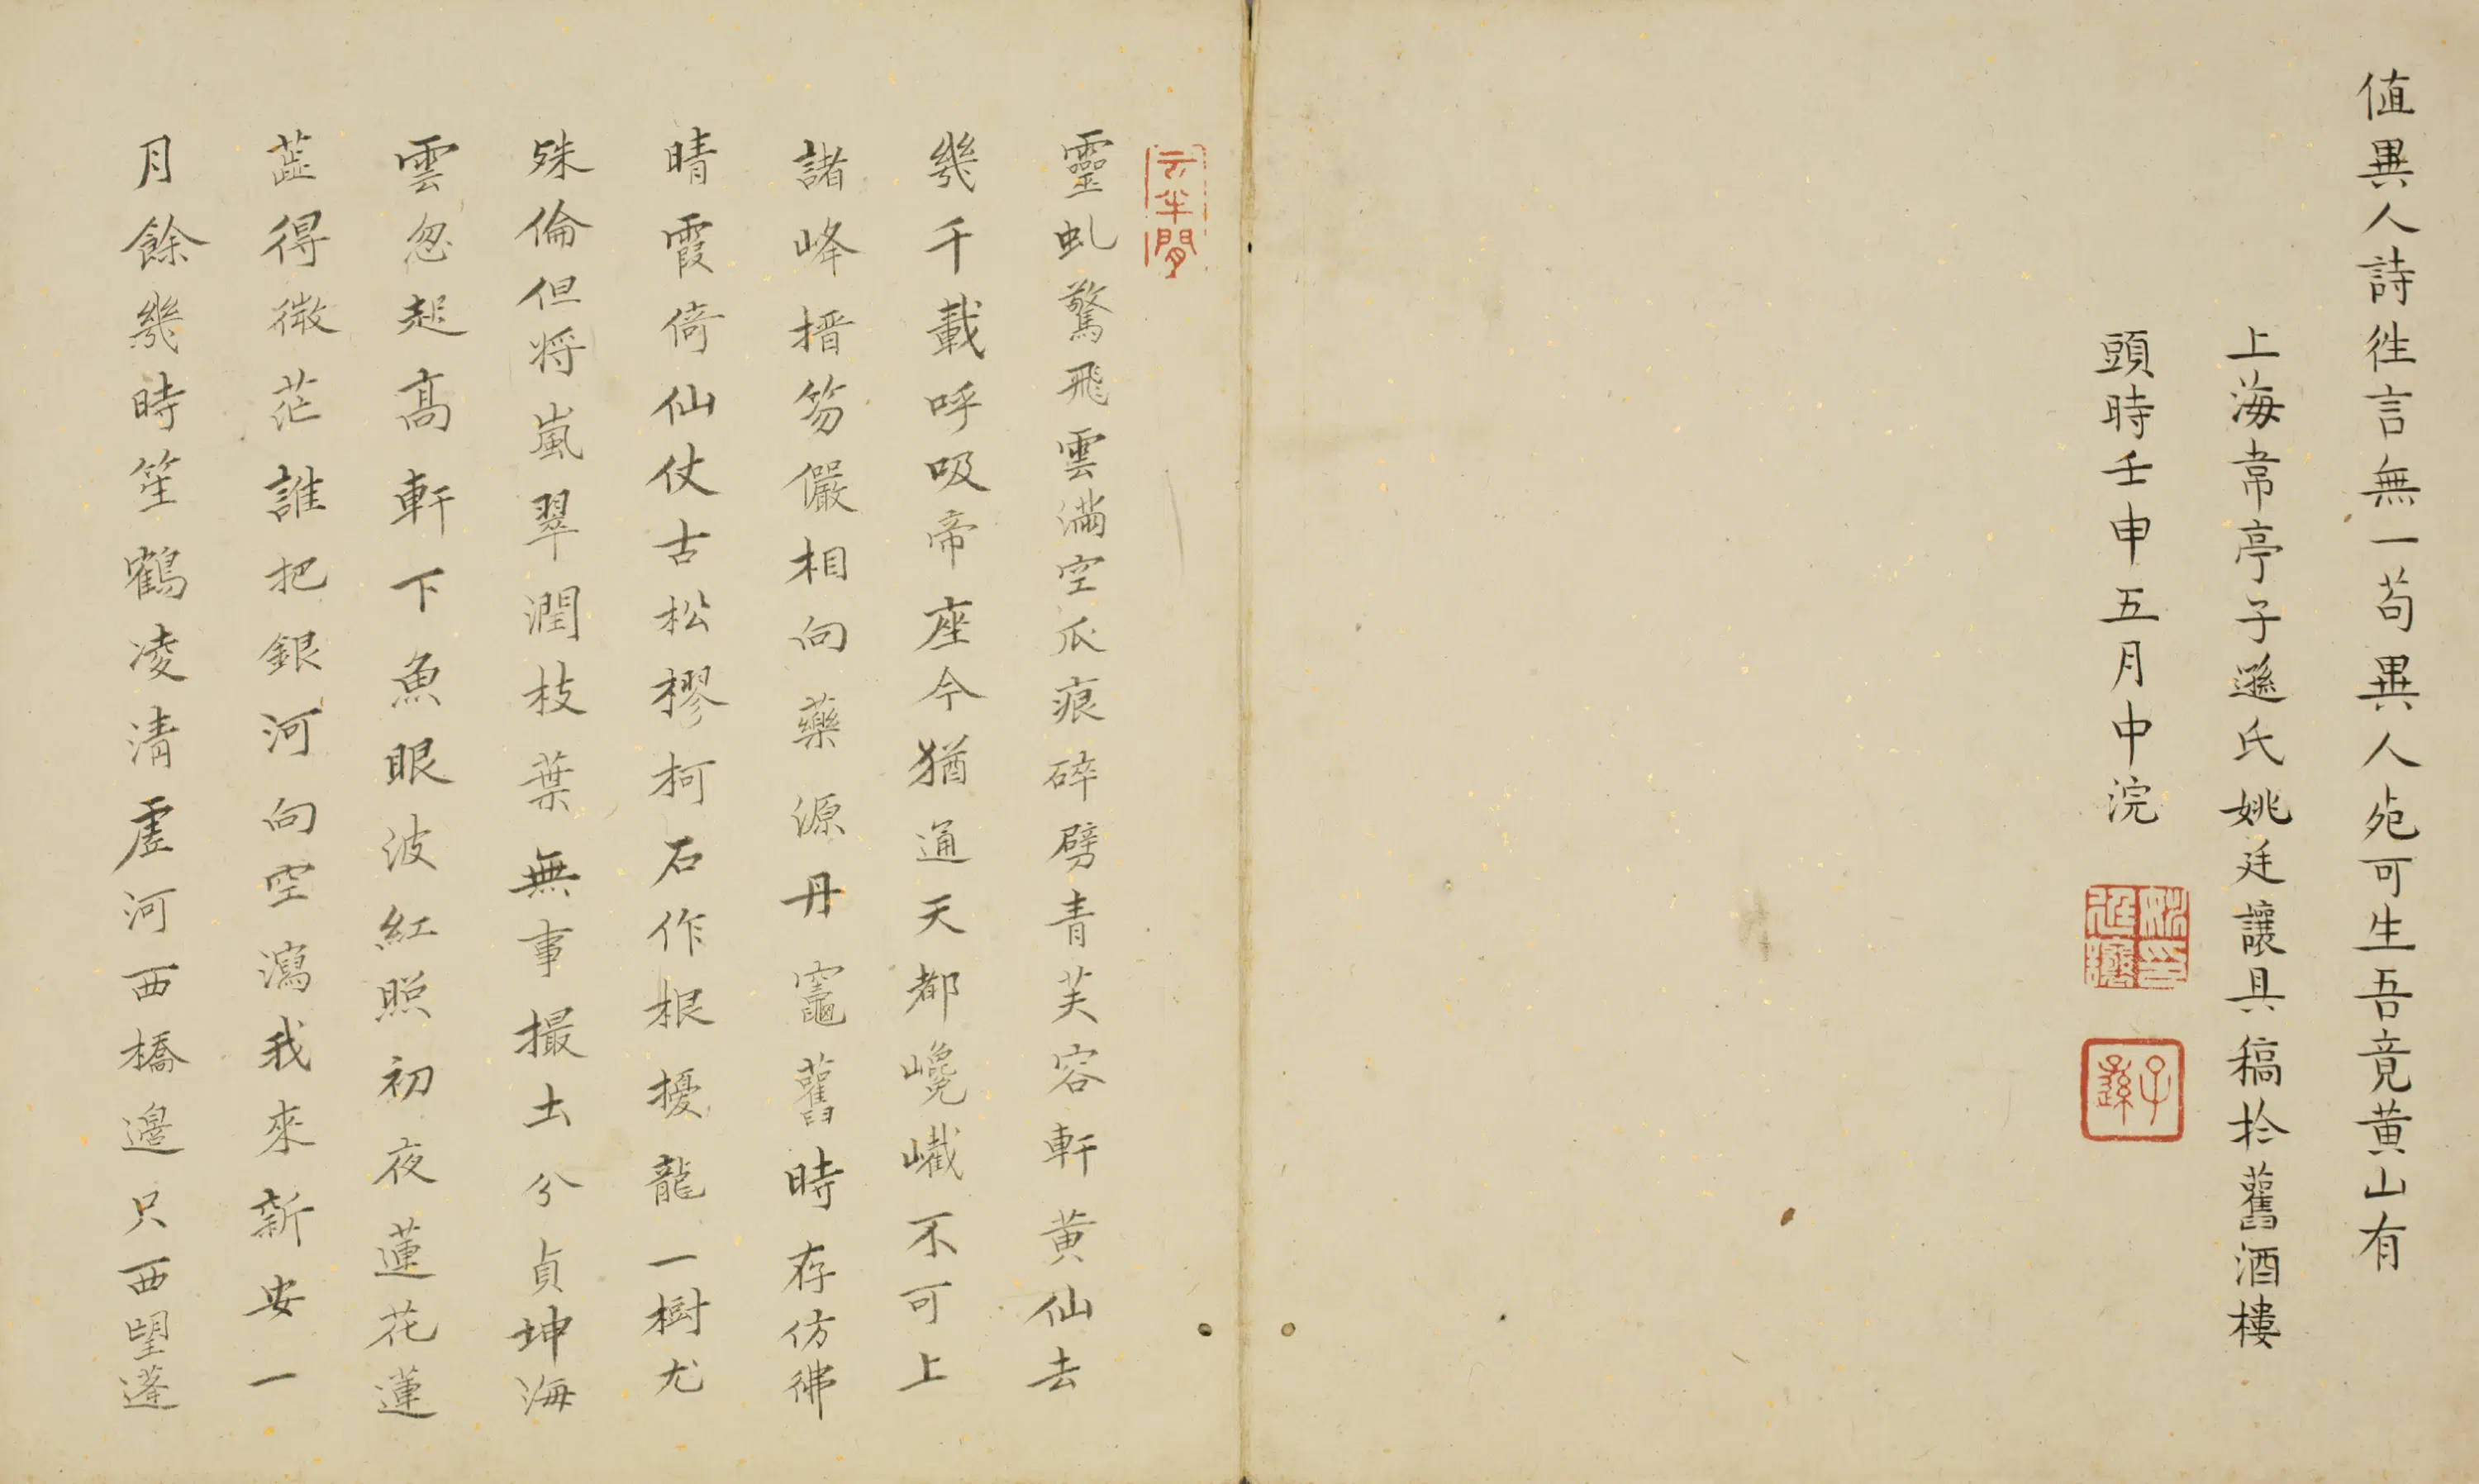 值異人詩徃言無一苟異人𡖖可生吾竟黄山有
上海常亭子遜氏姚廷讓具稿於舊酒樓
頭時壬申五月中浣
云半閒
靈虬驚飛雲滿空爪痕碎劈青芙容軒黄仙去
幾千載呼吸帝座今猶通天都巉巀不可上
諸峰搢笏儼相向藥源丹竈舊時存仿彿
晴霞倚仙仗古松樛柯石作根擾龍一樹尤
殊倫但将嵐翠潤枝葉無事撮土兮貞坤海
雲忽起高軒下魚眼波紅照初夜蓮花蓮
蕋得微茫誰把銀河向空瀉我來新安一
月餘幾時笙鶴凌清虛河西橋邊只西望蓬